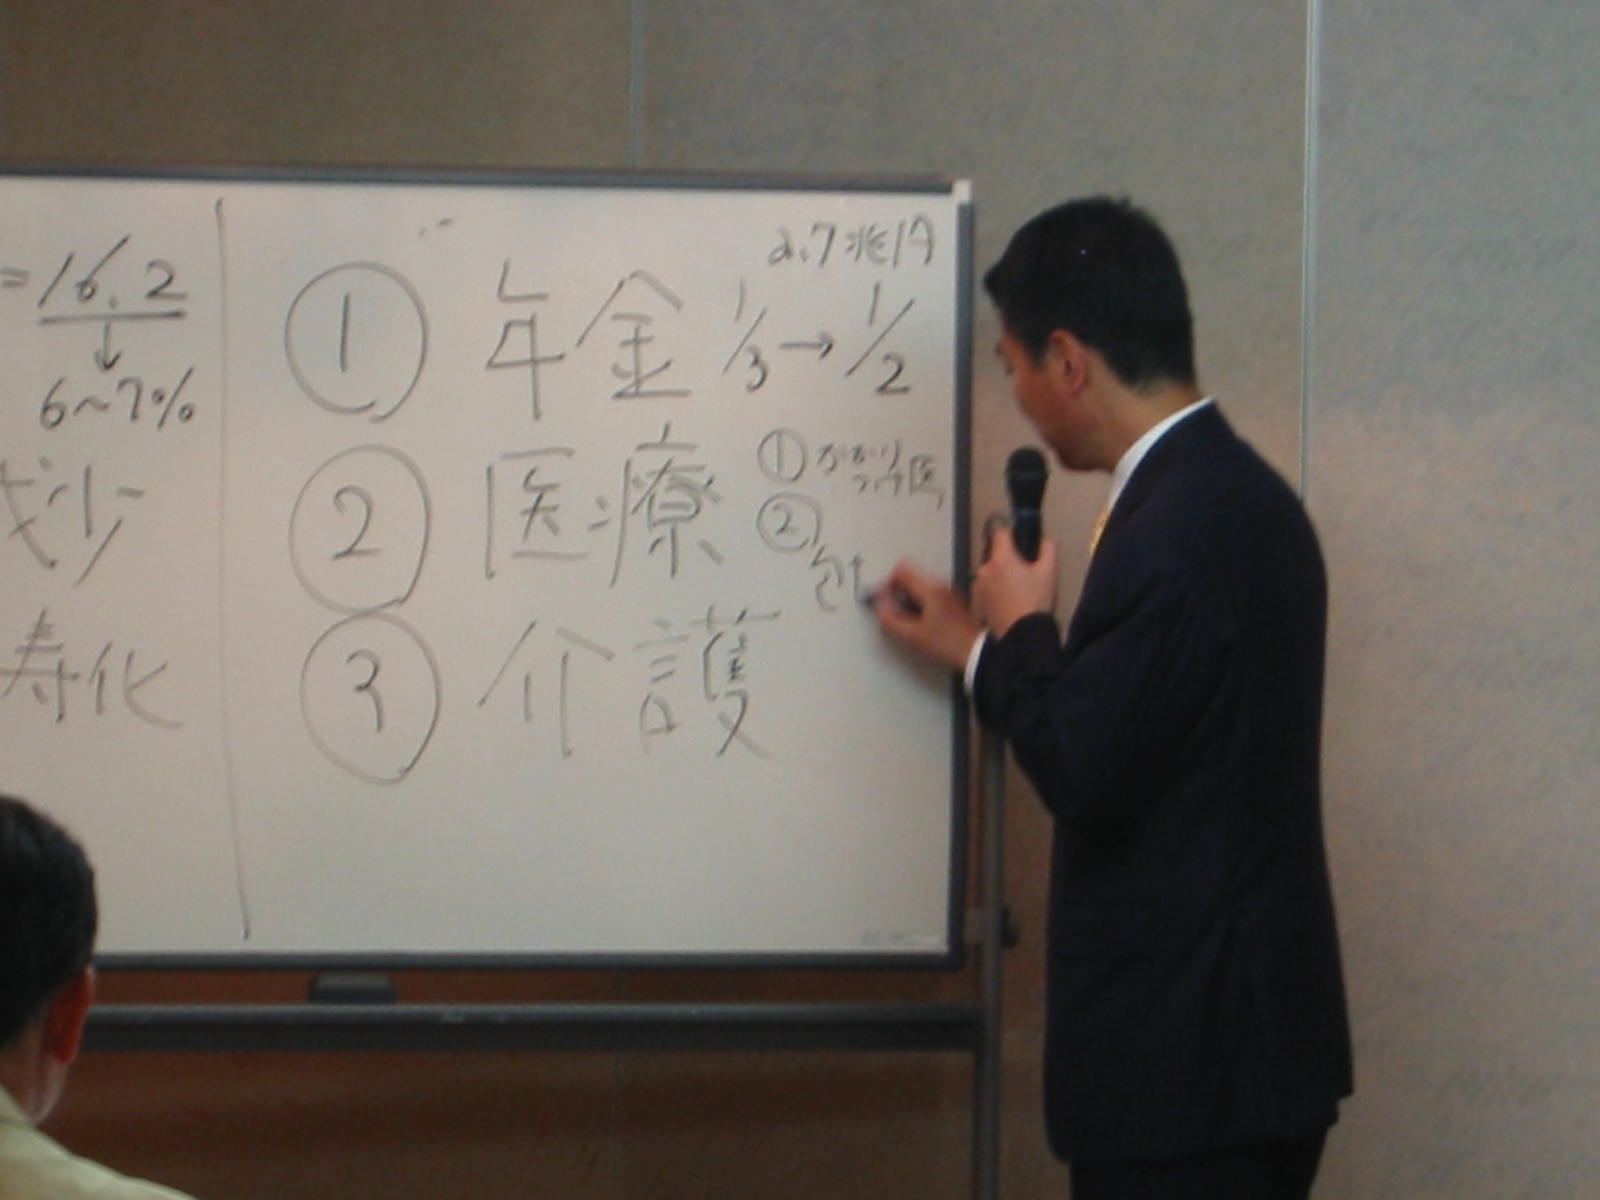 =16.2
↓
6~7%
少
寿化
2.7兆円
① 年金 1/3→1/2
② 医療
① かかり
つけ医
②
包
③ 介護